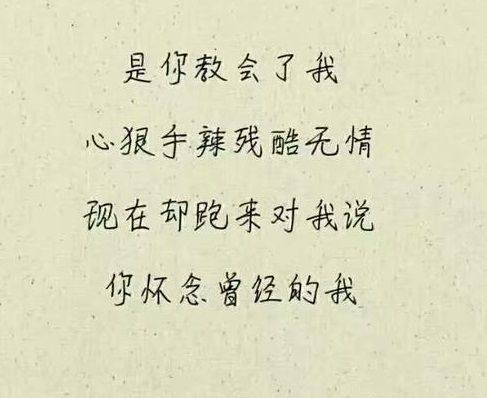 是你教会了我
心狠手辣残酷无情
现在却跑来对我说
你怀念曾经的我